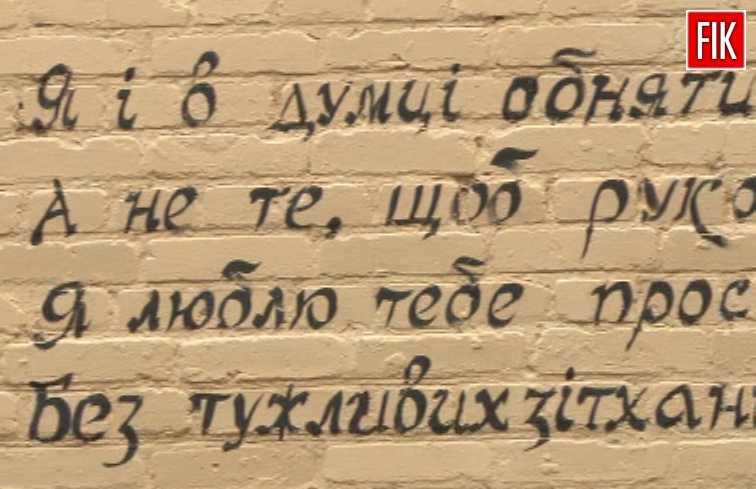 FIK
Я і в думці обняти
А не те, щоб руко
Я люблю тебе прос
Без тужливих зітхан